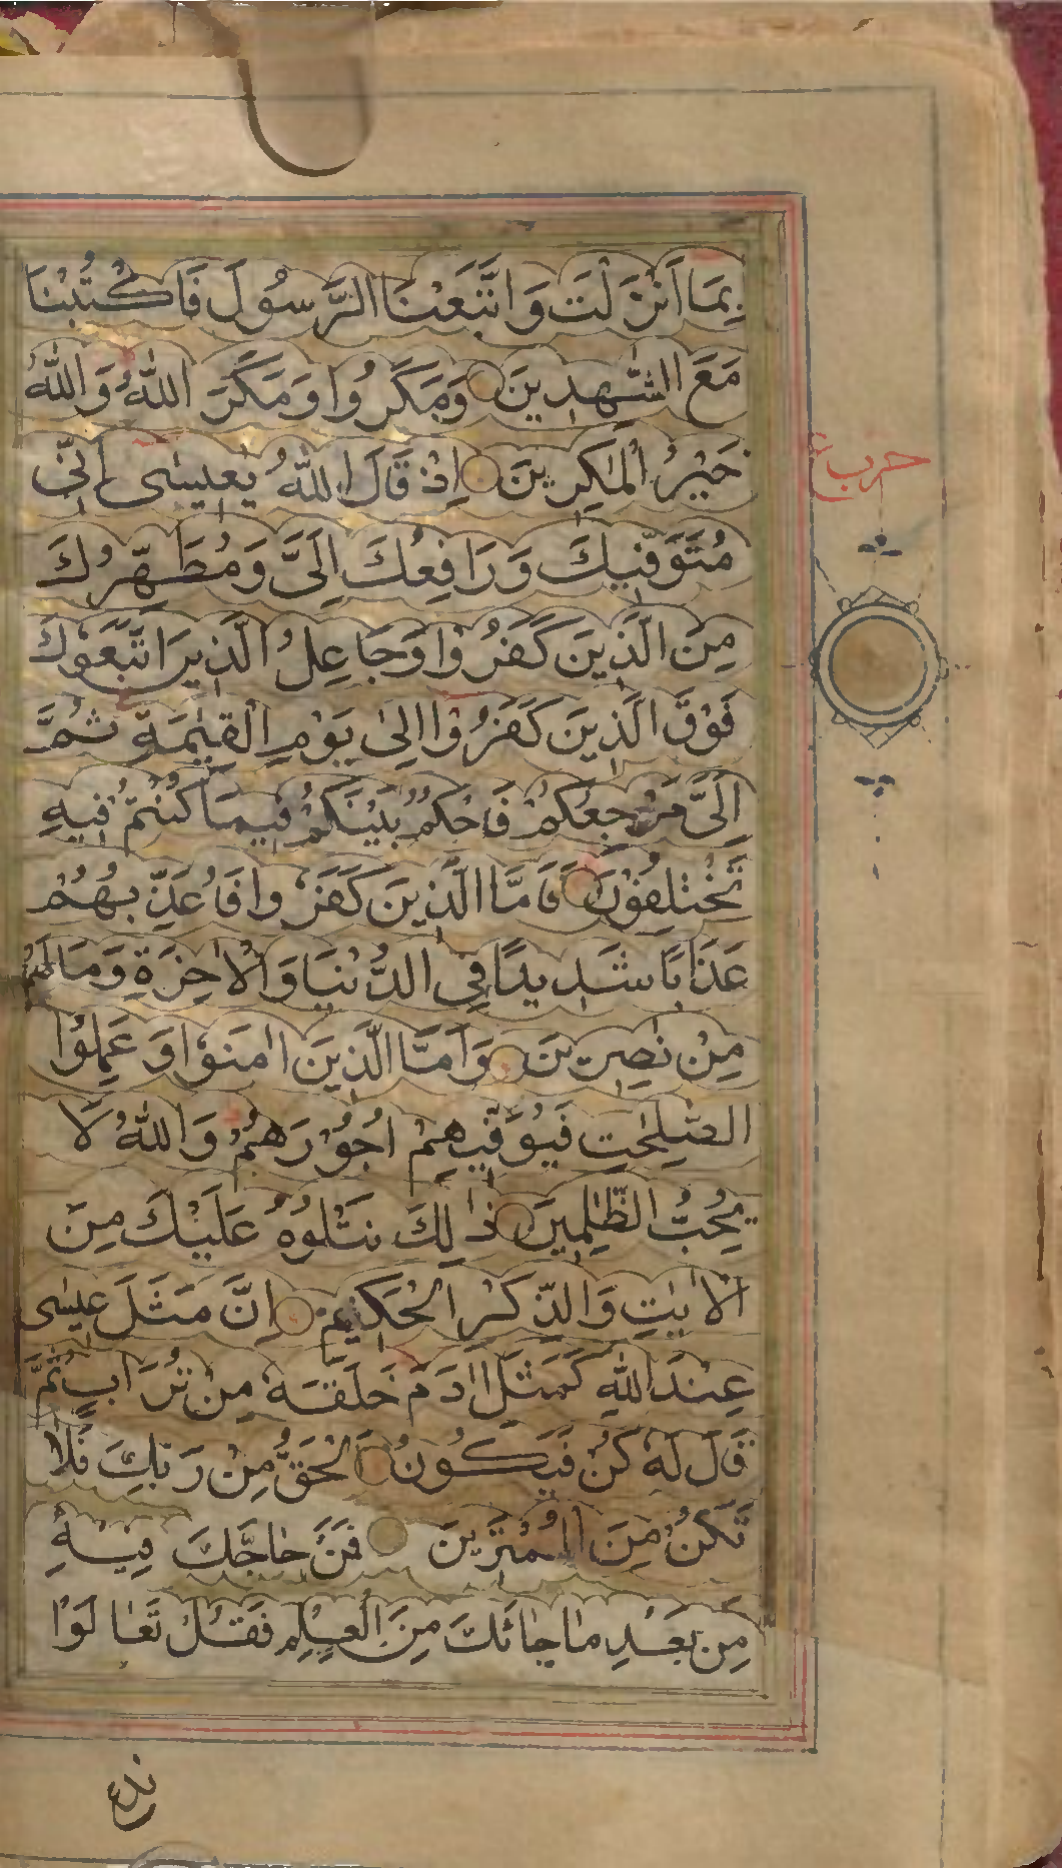 بِمَا اَنْزَلْتَ وَاتَّبَعْنَا الرَّسُولَ فَاكْتُبْنَا
مَعَ الشّٰهِدِينَ وَمَكَرُوا وَمَكَرَ اللّٰهُ وَاللّٰهُ
خَيْرُ الْمٰكِرِينَ اِذْ قَالَ اللّٰهُ يٰعِيسٰى اِنِّى
حزب
مُتَوَفِّيكَ وَرَافِعُكَ اِلَىَّ وَمُطَهِّرُكَ
مِنَ الَّذِينَ كَفَرُوْا وَجَاعِلُ الَّذِينَ اتَّبَعُوكَ
فَوْقَ الَّذِينَ كَفَرُوْا اِلىٰ يَوْمِ الْقِيٰمَةِ ثُمَّ
اِلَىَّ مَرْجِعُكُمْ فَاَحْكُمُ بَيْنَكُمْ فِيمَا كُنْتُمْ فِيهِ
تَخْتَلِفُوْنَ فَاَمَّا الَّذِينَ كَفَرُوا فَاُعَذِّبُهُمْ
عَذَابًا شَدِيدًا فِى الدُّنْيَا وَالْاٰخِرَةِ وَمَا لَهُمْ
مِنْ نٰصِرِينَ وَاَمَّا الَّذِينَ اٰمَنُوْا وَعَمِلُوا
الصّٰلِحٰتِ فَيُوَفِّيهِمْ اُجُوْرَهُمْ وَاللّٰهُ لَا
يُحِبُّ الظّٰلِمِينَ ذٰلِكَ نَتْلُوْهُ عَلَيْكَ مِنَ
الْاٰيٰتِ وَالذِّكْرِ الْحَكِيْمِ اِنَّ مَثَلَ عِيسٰى
عِنْدَ اللّٰهِ كَمَثَلِ اٰدَمَ خَلَقَهُ مِنْ تُرَابٍ ثُمَّ
قَالَ لَهُ كُنْ فَيَكُونُ الْحَقُّ مِنْ رَبِّكَ فَلَا
تَكُنْ مِنَ الْمُمْتَرِينَ فَمَنْ حَاجَّكَ فِيْهِ
مِنْ بَعْدِ مٰا جٰائَكَ مِنَ الْعِلْمِ فَقُلْ تَعٰالَوْا
ندع